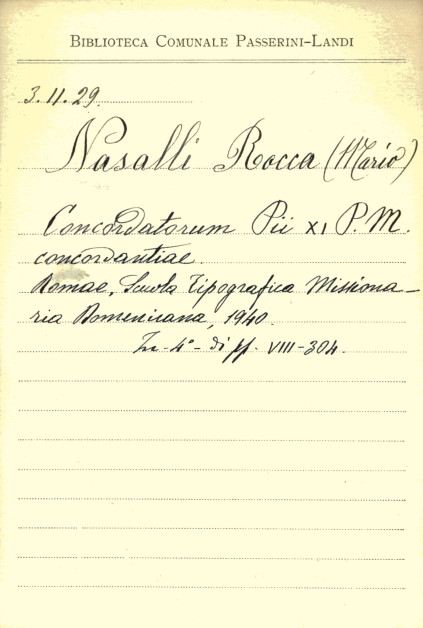 BIBLIOTECA COMUNALE PASSERINI-LANDI
3.11.29.
Nasalli Rocca (Mario)
Concordatorum Pii XI P. M.
concordantiae.
Romae, Scuola Tipografica Missiona-
ria Domenicana, 1940.
In-4° - di pp. VIII-304.